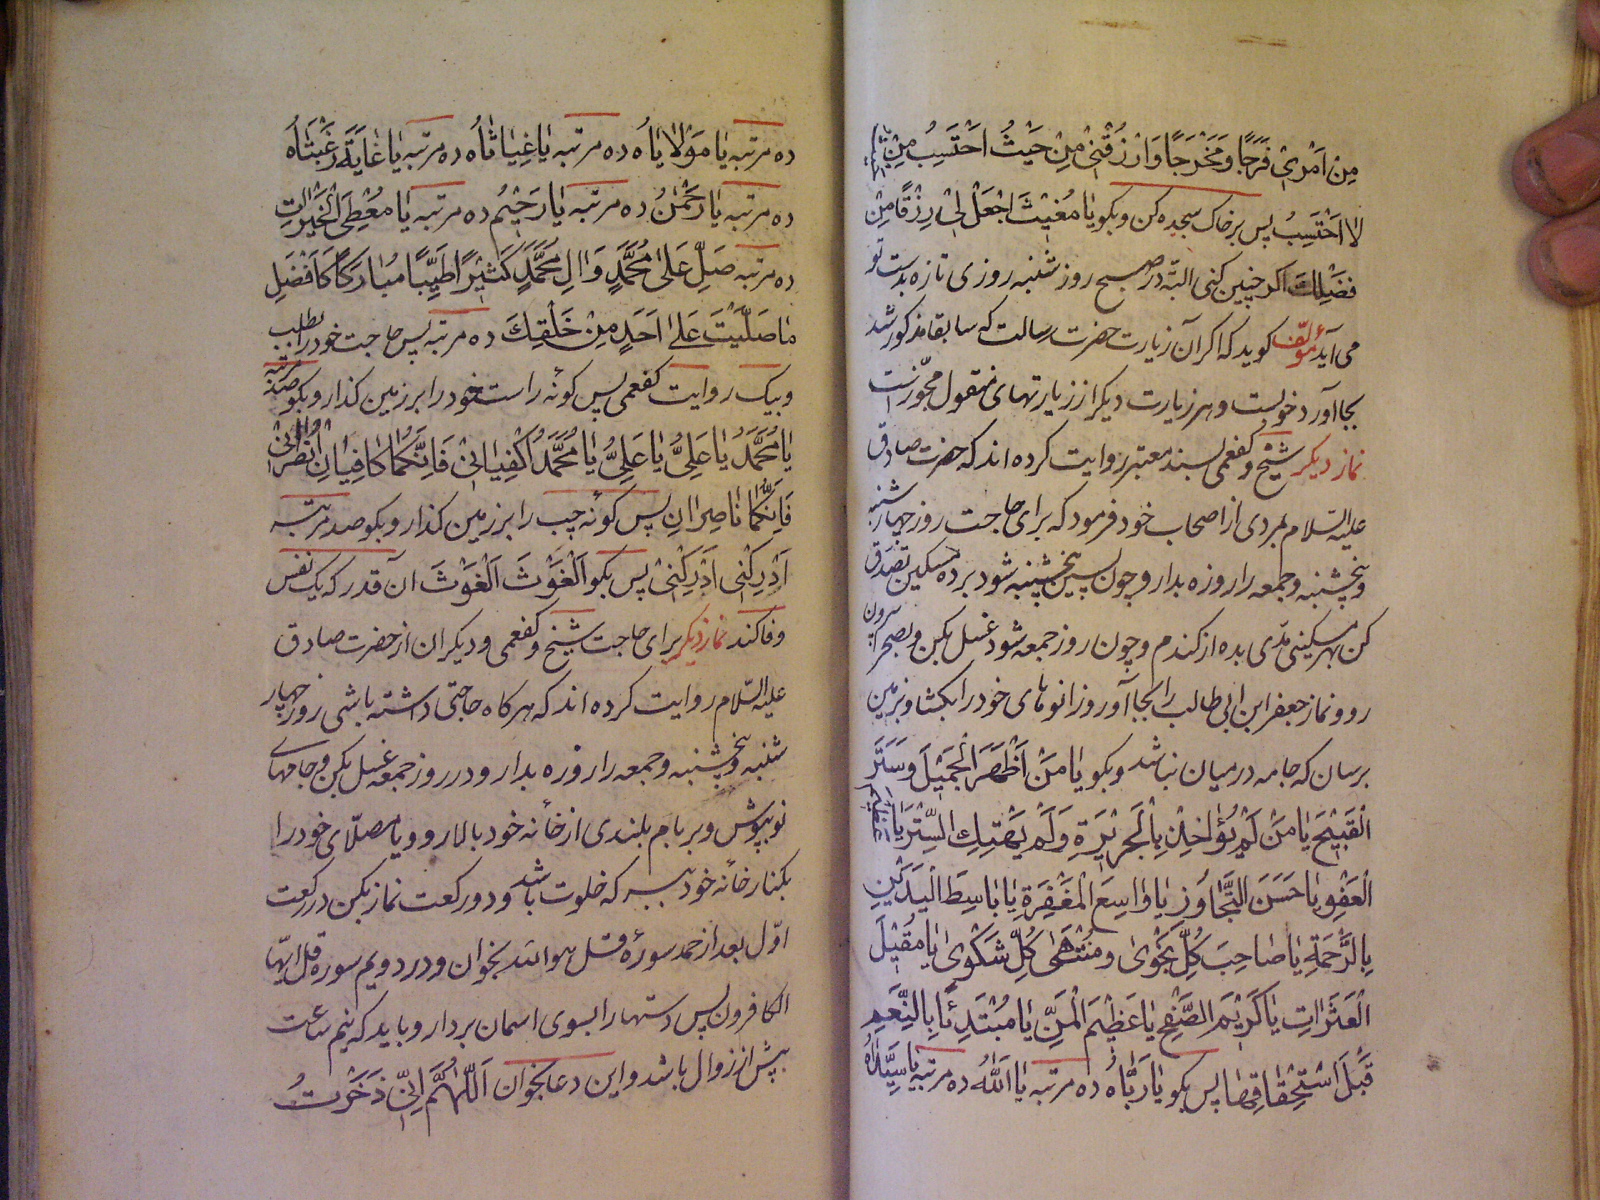 مِن اَمْرِیْ فَرَجًا وَمَخْرَجًا وَارْزُقْنِیْ مِنْ حَیْثُ اَحْتَسِبُ مِنْ حَیْثُ
لا اَحْتَسِبُ پس برخاک سجده کن و بکو یٰا مُغِیْثَ اجْعَلْ لِیْ رِزْقًا مِنْ
فَضْلِكَ اکر چنین کنی البتّه در صبح روز شنبه روزی تازه بدست تو
می آید مؤلّف کوید که اکر آن زیارت حضرت رسالت که سابقا مذکور شد
بجا آورد خوبست و هر زیارت دیکر از زیارتهای منقول مجوّزست
نماز دیکر شیخ و کفعمی بسند معتبر روایت کرده اند که حضرت صادق
علیه السّلام بمردی از اصحاب خود فرمود که برای حاجت روز چهارشنبه
و پنجشنبه و جمعه را روزه بدار و چون پسین پنجشنبه شود بر ده مسکین تصدّق
کن بهر مسکینی مدّی بده از کندم و چون روز جمعه شود غسل بکن و بصحرا بیرون
رو و نماز جعفر ابن ابی طالب را بجا آور و زانوهای خود را بکشا و بزمین
برسان که جامه در میان نباشد و بکو یٰا مَنْ اَظْهَرَ الْجَمِیْلَ وَسَتَرَ
الْقَبِیْحَ یٰا مَنْ لَمْ یُؤٰاخِذْ بِالْجَرِیْرَةِ وَلَمْ یَهْتِكِ السِّتْرَ یٰا عَظِیْمَ
الْعَفْوِ یٰا حَسَنَ التَّجٰاوُزِ یٰا وٰاسِعَ الْمَغْفِرَةِ یٰا بٰاسِطَ الْیَدَیْنِ
بِالرَّحْمَةِ یٰا صٰاحِبَ كُلِّ نَجْوٰی وَ مُنْتَهٰی كُلِّ شَكْوٰی یٰا مُقِیْلَ
الْعَثَرٰاتِ یٰا كَرِیْمَ الصَّفْحِ یٰا عَظِیْمَ الْمَنِّ یٰا مُبْتَدِئًا بِالنِّعَمِ
قَبْلَ اسْتِحْقٰاقِهٰا پس بکو یٰا رَبّٰاهُ ده مرتبه یٰا اَللّٰهُ ده مرتبه یٰا سَیِّدٰاهُ
ده مرتبه یٰا مَوْلٰایٰاهُ ده مرتبه یٰا غِیٰاثٰاهُ ده مرتبه یٰا غٰایَةَ رَغْبَتٰاهُ
ده مرتبه یٰا رَحْمٰنُ ده مرتبه یٰا رَحِیْمُ ده مرتبه یٰا مُعْطِیَ الْخَیْرٰاتِ
ده مرتبه صَلِّ عَلٰی مُحَمَّدٍ وَاٰلِ مُحَمَّدٍ كَثِیْرًا طَیِّبًا مُبٰارَكًا كَاَفْضَلِ
مٰا صَلَّیْتَ عَلٰی اَحَدٍ مِنْ خَلْقِكَ ده مرتبه پس حاجت خود را بطلب
و بیک روایت کفعمی پس کونهٔ راست خود را بر زمین کذار و بکو صد مرتبه
یٰا مُحَمَّدُ یٰا عَلِیُّ یٰا عَلِیُّ یٰا مُحَمَّدُ اكْفِیٰانِیْ فَاِنَّكُمٰا كٰافِیٰانِ اُنْصُرٰانِیْ
فَاِنَّكُمٰا نٰاصِرٰانِ پس کونهٔ چپ را بر زمین کذار و بکو صد مرتبه
اَدْرِكْنِیْ اَدْرِكْنِیْ پس بکو اَلْغَوْثَ اَلْغَوْثَ آن قدر که یک نفس
وفا کند نماز دیکر برای حاجت شیخ و کفعمی و دیکران از حضرت صادق
علیه السّلام روایت کرده اند که هرکاه حاجتی داشته باشی روز چهار
شنبه و پنجشنبه و جمعه را روزه بدار و در روز جمعه غسل بکن و جامهای
نو بپوش و بر بام بلندی از خانهٔ خود بالا رو و یا مصلّای خود را
بکنار خانهٔ خود ببر که خلوت باشد و دو رکعت نماز بکن در رکعت
اوّل بعد از حمد سورهٔ قل هو الله بخوان و در دویم سوره قل ایّها
الکافرون پس دستها را بسوی اسمان بردار و باید که نیم ساعت
بیش از زوال باشد و این دعا بخوان اَللّٰهُمَّ اِنِّیْ ذَخَرْتُ